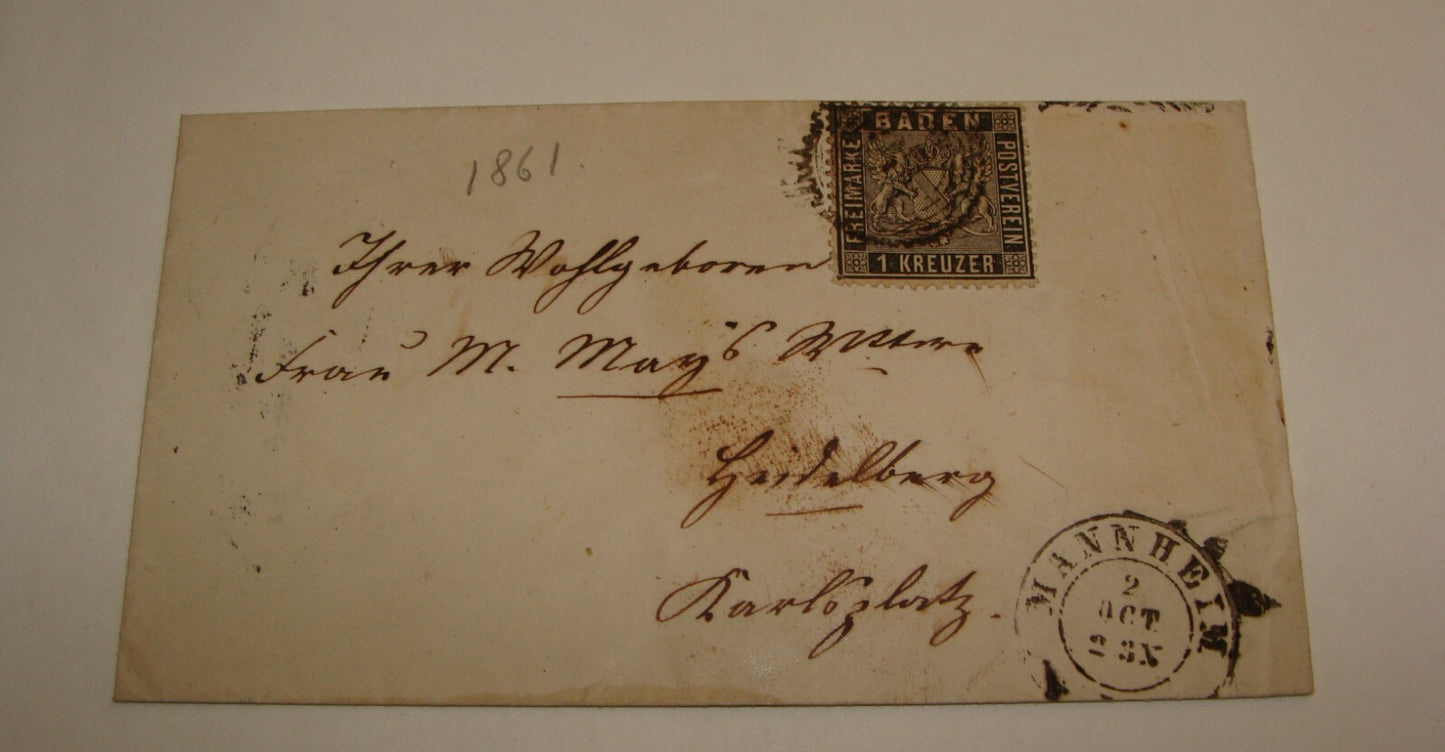 1861.
BADEN
FREIMARKE
POSTVEREIN
1 KREUZER
Ihrer Wohlgeboren
Frau M. May's Wittwe
Heidelberg
Karlsplatz.
MANNHEIM
2
OCT